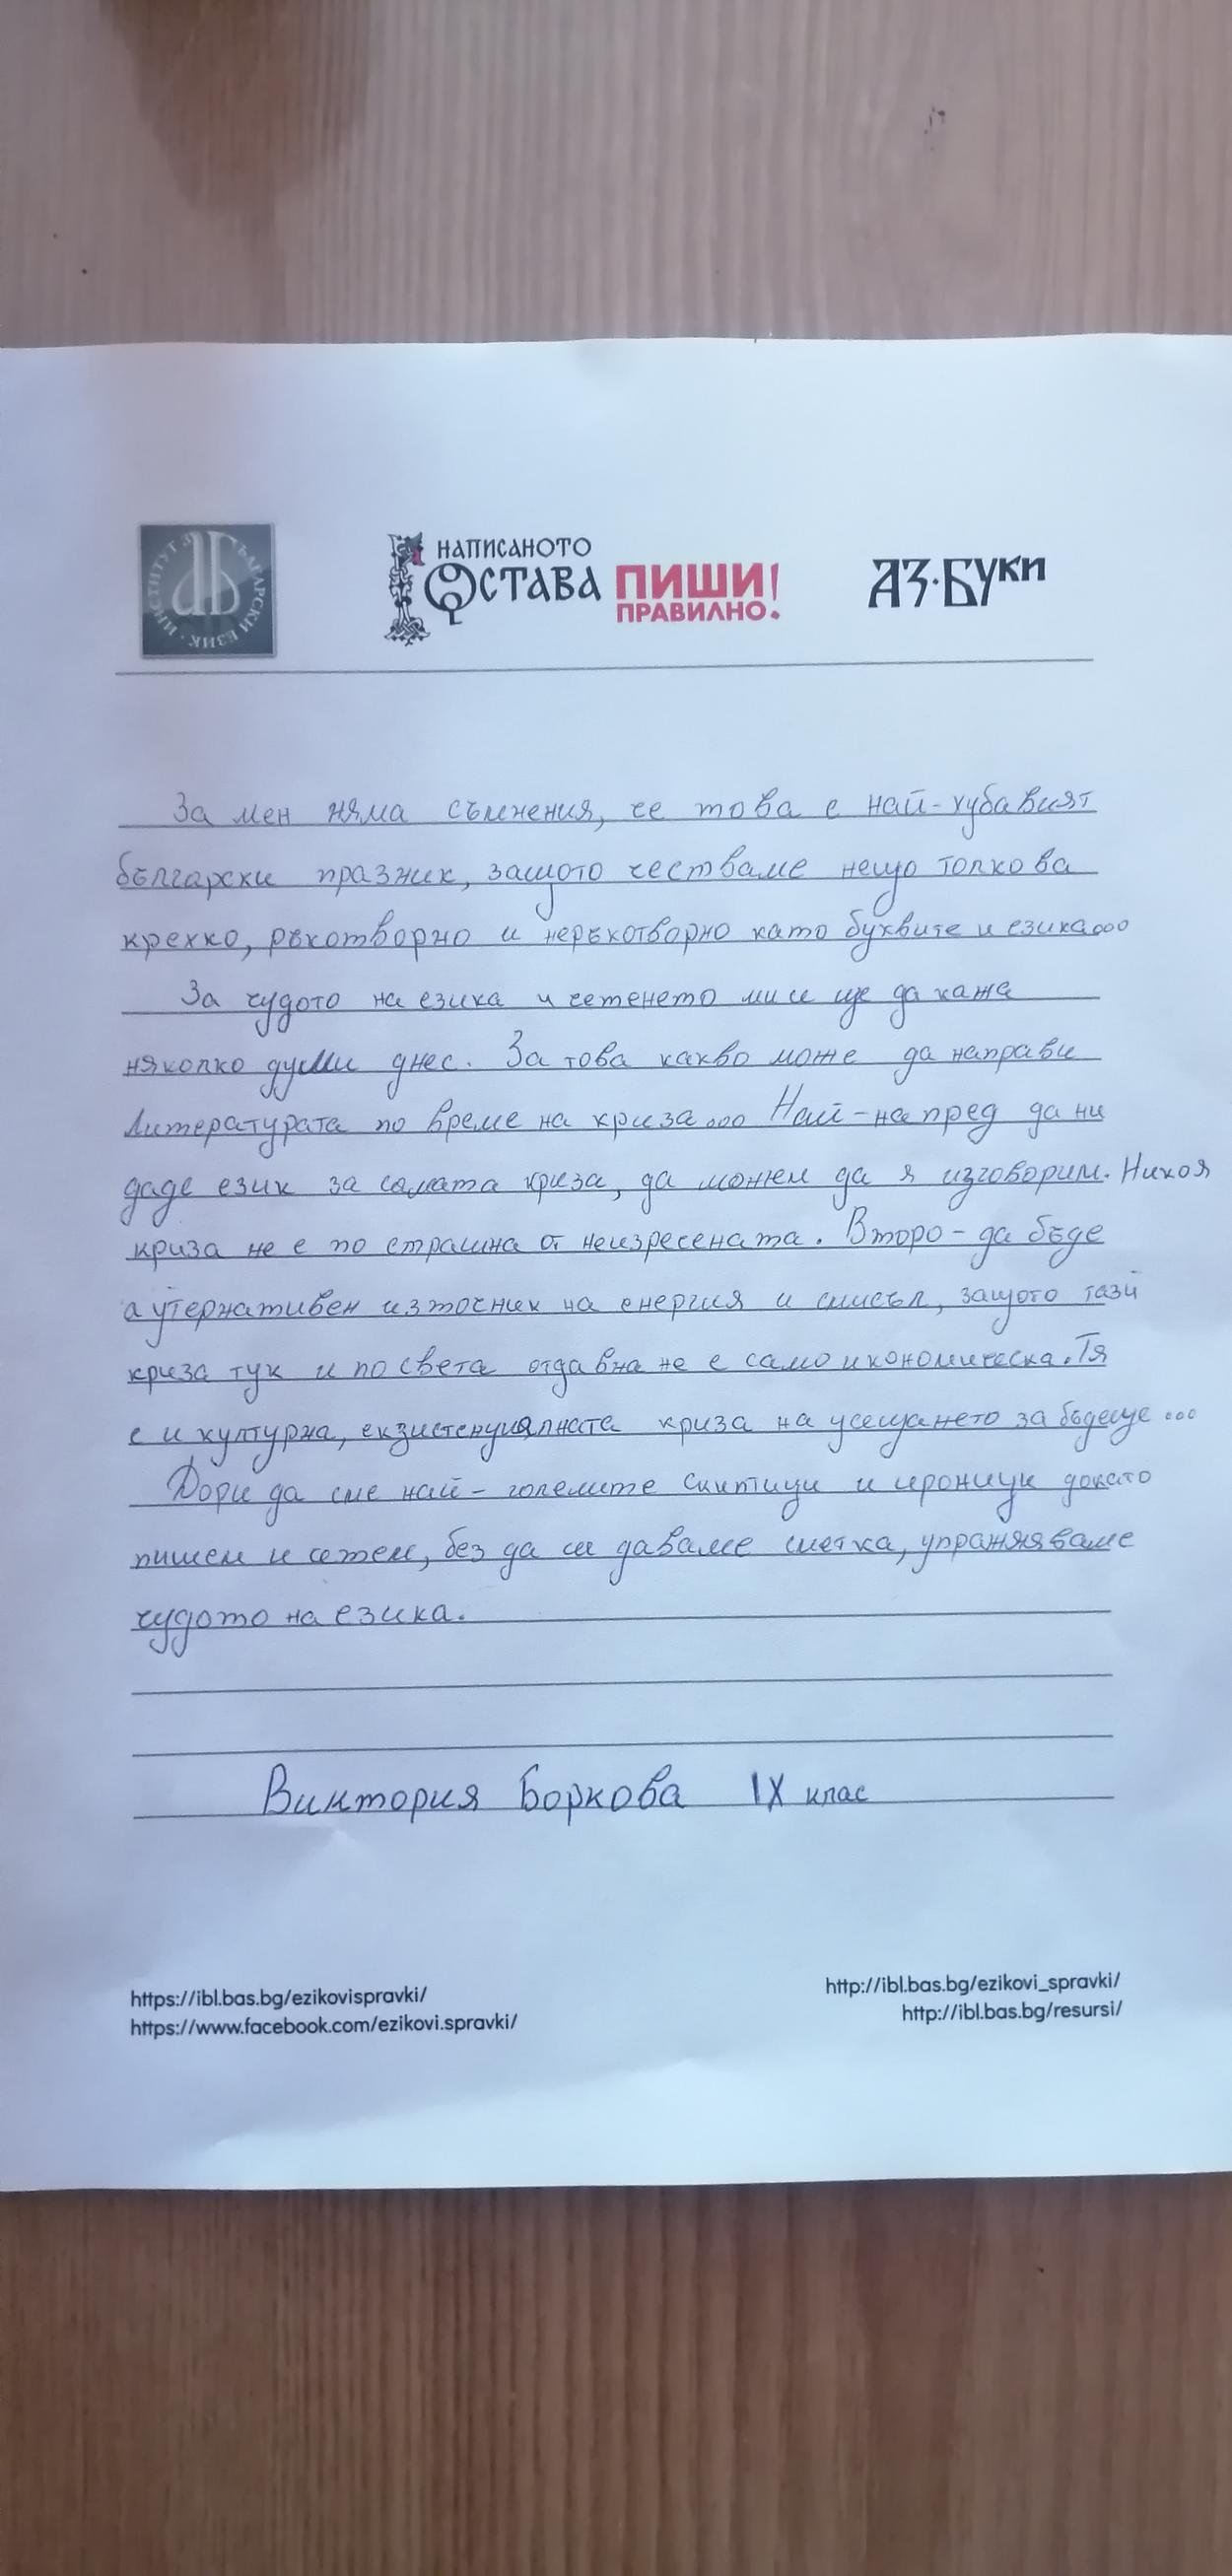 ИНСТИТУТ ЗА БЪЛГАРСКИ ЕЗИК
НАПИСАНОТО
ОСТАВА
ПИШИ!
ПРАВИЛНО.
АЗ·БУКИ
За мен няма съмнения, че това е най-хубавият
български празник, защото честваме нещо толкова
крехко, ръкотворно и неръкотворно като буквите и езика...
За чудото на езика и четенето ми се ще да кажа
няколко думи днес. За това какво може да направи
Литературата по време на криза... Най-напред да ни
даде език за самата криза, да можем да я изговорим. Никоя
криза не е по страшна от неизречената. Второ - да бъде
аутернативен източник на енергия и смисъл, защото тази
криза тук и по света отдавна не е само икономическа. Тя
е и културна, екзистенциалната криза на усещането за бъдеще...
Дори да сме най-големите скиптици и ироници докато
пишем и четем, без да си даваме сметка, упражняваме
чудото на езика.
Виктория Боркова IX клас
https://ibl.bas.bg/ezikovispravki/
https://www.facebook.com/ezikovi.spravki/
http://ibl.bas.bg/ezikovi_spravki/
http://ibl.bas.bg/resursi/